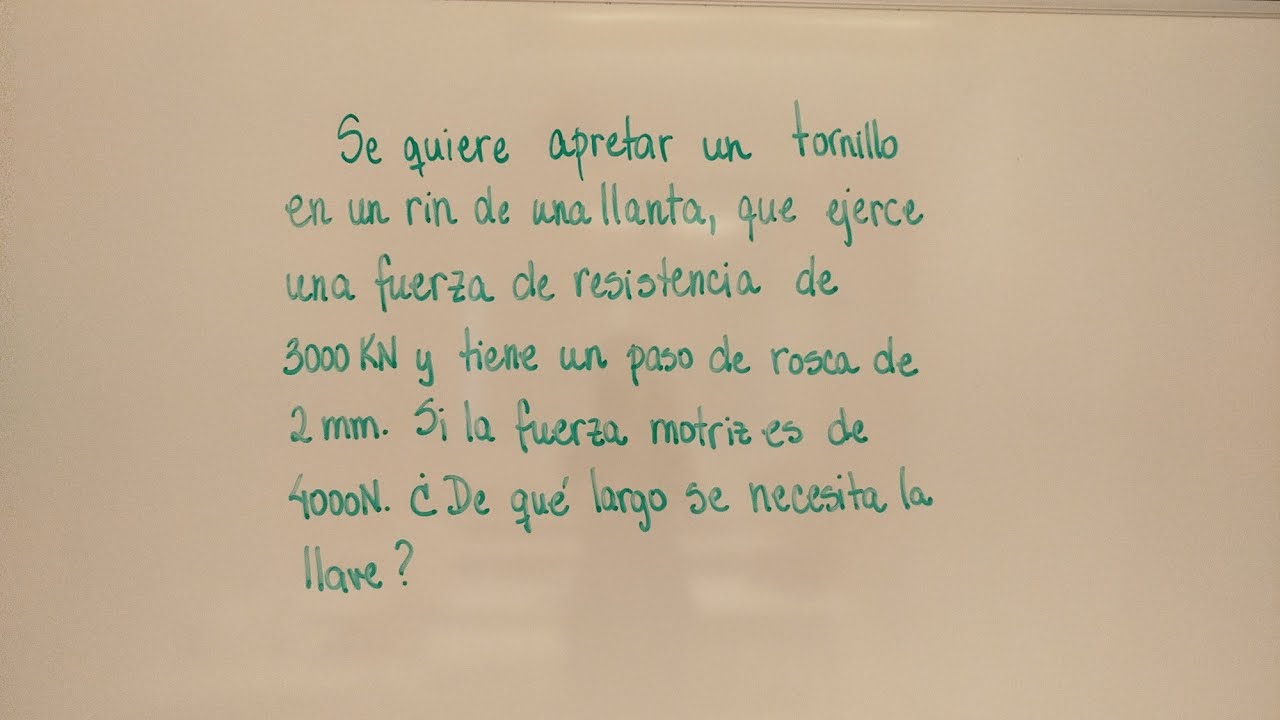 Se quiere apretar un tornillo
en un rin de una llanta, que ejerce
una fuerza de resistencia de
3000 KN y tiene un paso de rosca de
2 mm. Si la fuerza motriz es de
4000N. ¿De qué largo se necesita la
llave?